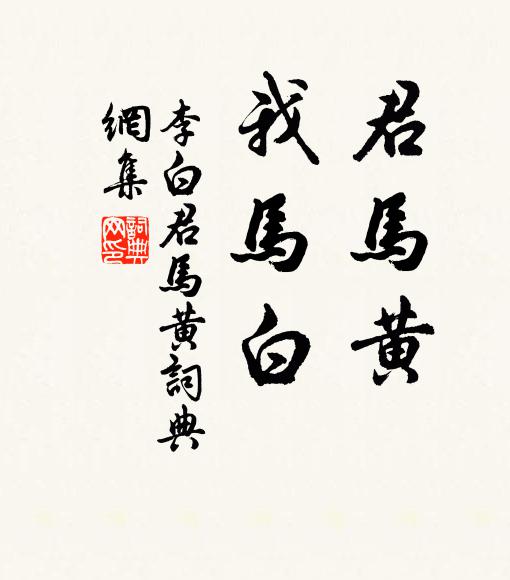 君馬黃
我馬白
李白君馬黃詞典
網集
詞典
网印